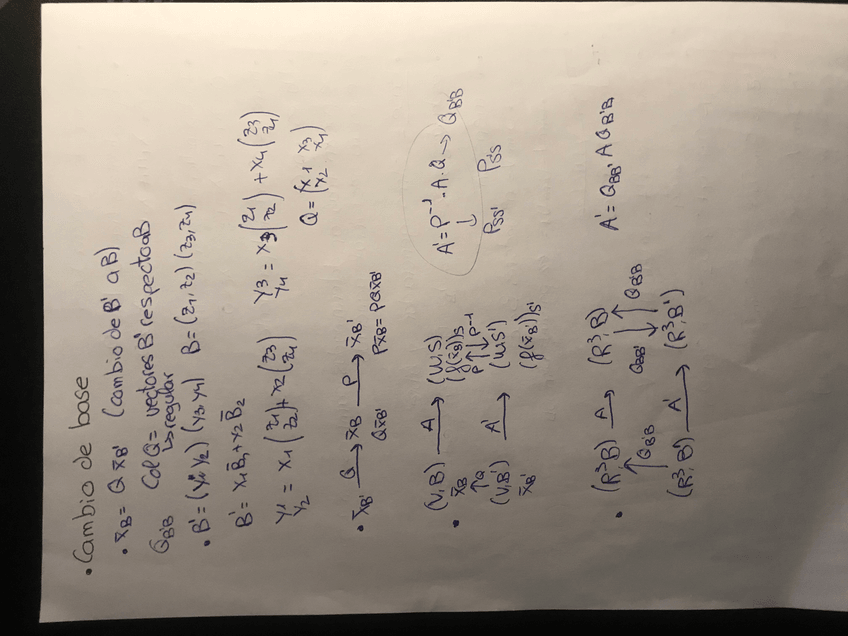 • Cambio de base
• x̄B = Q x̄B' (cambio de B' a B)
QB'B Col Q = vectores B' respecto a B
↳ regular
• B' = (y1, y2) (y3, y4) B = (z1, z2) (z3, z4)
B' = x1 B̄1 + x2 B̄2
y1 y2 = x1 (z1 z2) + x2 (z3 z4) y3 y4 = x3 (z1 z2) + x4 (z3 z4)
Q = (x1 x3 x2 x4)
• x̄B' Q → x̄B P → x̄B'
Q x̄B' P x̄B = P Q x̄B'
• (V, B) A → (W, S) A' = P⁻¹ · A · Q → QB'B
x̄B (f(x̄B))S
↑ Q P ↑ ↓ P⁻¹ PSS' PS'S
(V, B') A' → (W, S')
x̄B' (f(x̄B'))S'
• (R³, B) A → (R³, B)
↑ QB'B QBB' ↓ ↑ QB'B A' = QBB' A QB'B
(R³, B') A' → (R³, B')